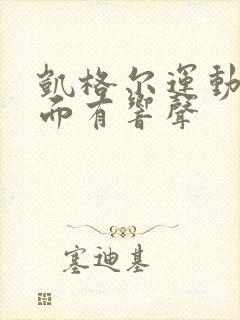 凱格尔運動
而有響聲
塞迪基